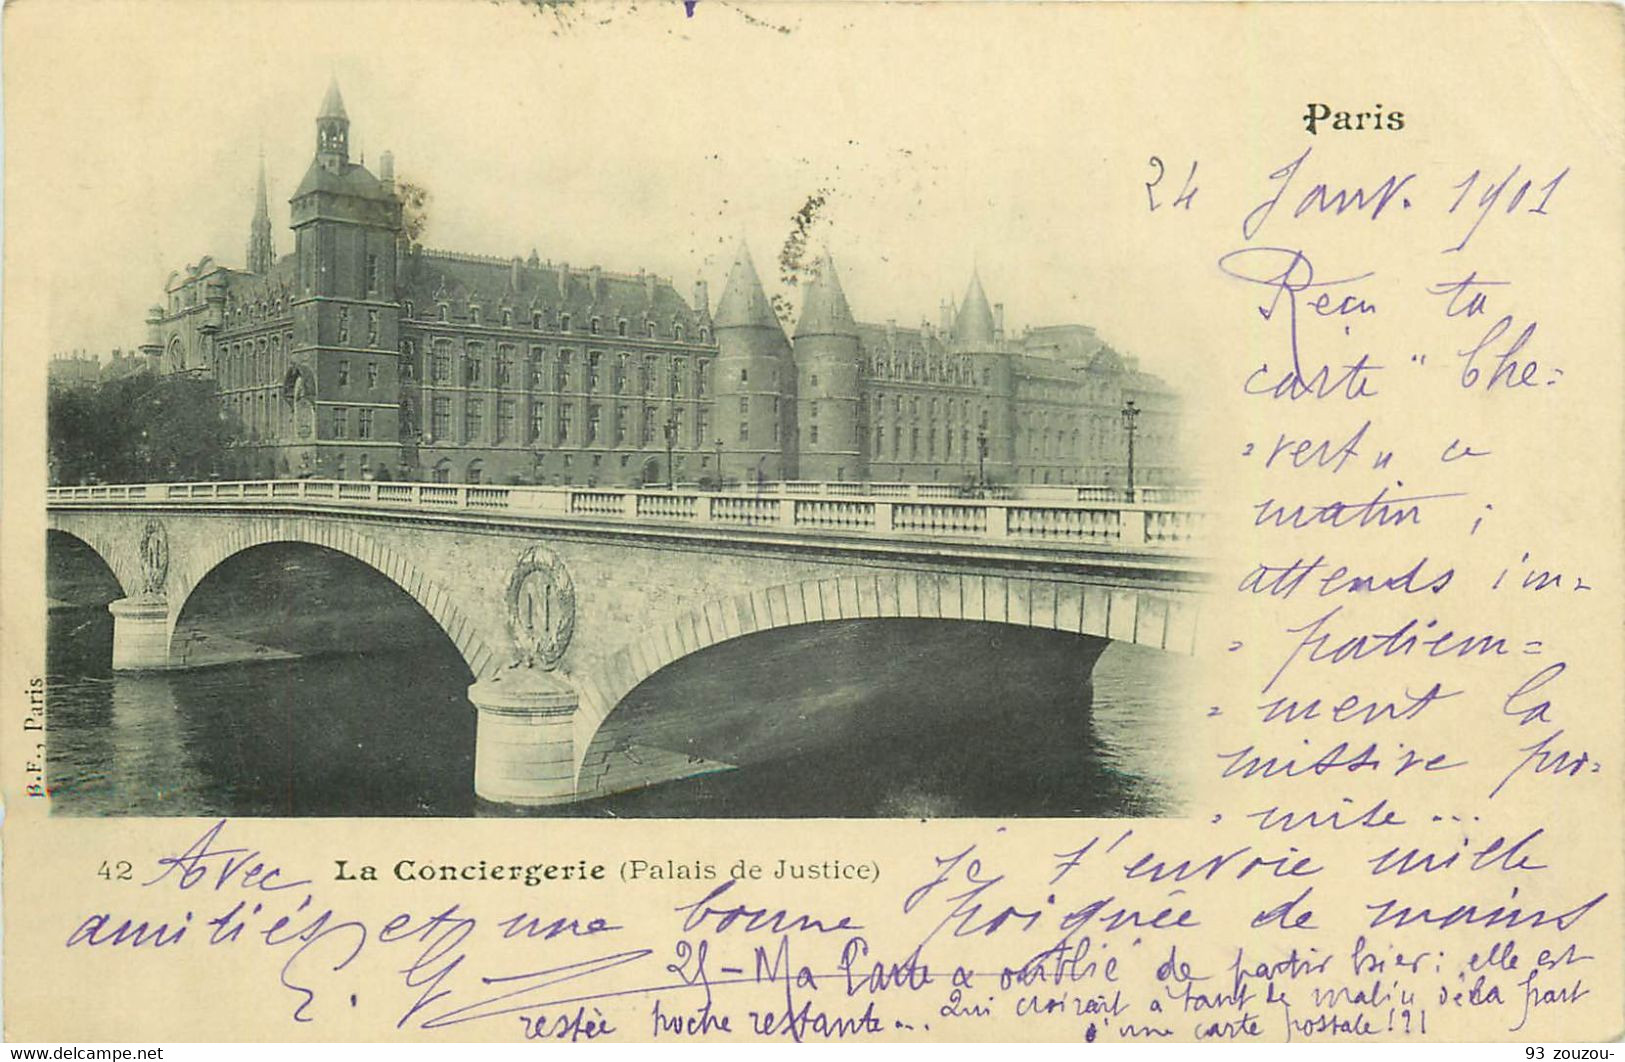 Paris
24 Janv. 1901
Reçu ta
carte "Che=
=vert" ce
matin ;
attends im=
=patiem=
=ment la
missive pro=
=mise...
B.F., Paris
42 La Conciergerie (Palais de Justice)
Je t'envoie mille
Avec
amitiés et une bonne poignée de mains
E. G.
25 - Ma Carte a oublié de partir hier : elle est
restée poche restante... Qui croirait à tant de malice de la part
d'une carte postale !?!
93 zouzou-